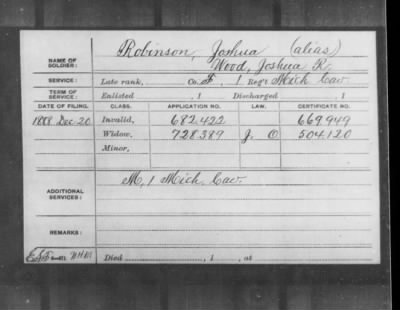 NAME OF SOLDIER: Robinson, Joshua (alias)
Wood, Joshua R.
SERVICE: Late rank, Co. F, 1 Reg't Mich Cav.
TERM OF SERVICE: Enlisted , 1 Discharged , 1
DATE OF FILING. CLASS. APPLICATION NO. LAW. CERTIFICATE NO.
1888 Dec 20 Invalid, 682.422 669949
Widow, 728389 J. O 504.120
Minor,
ADDITIONAL SERVICES: M, 1 Mich. Cav.
REMARKS:
Died , 1 , at